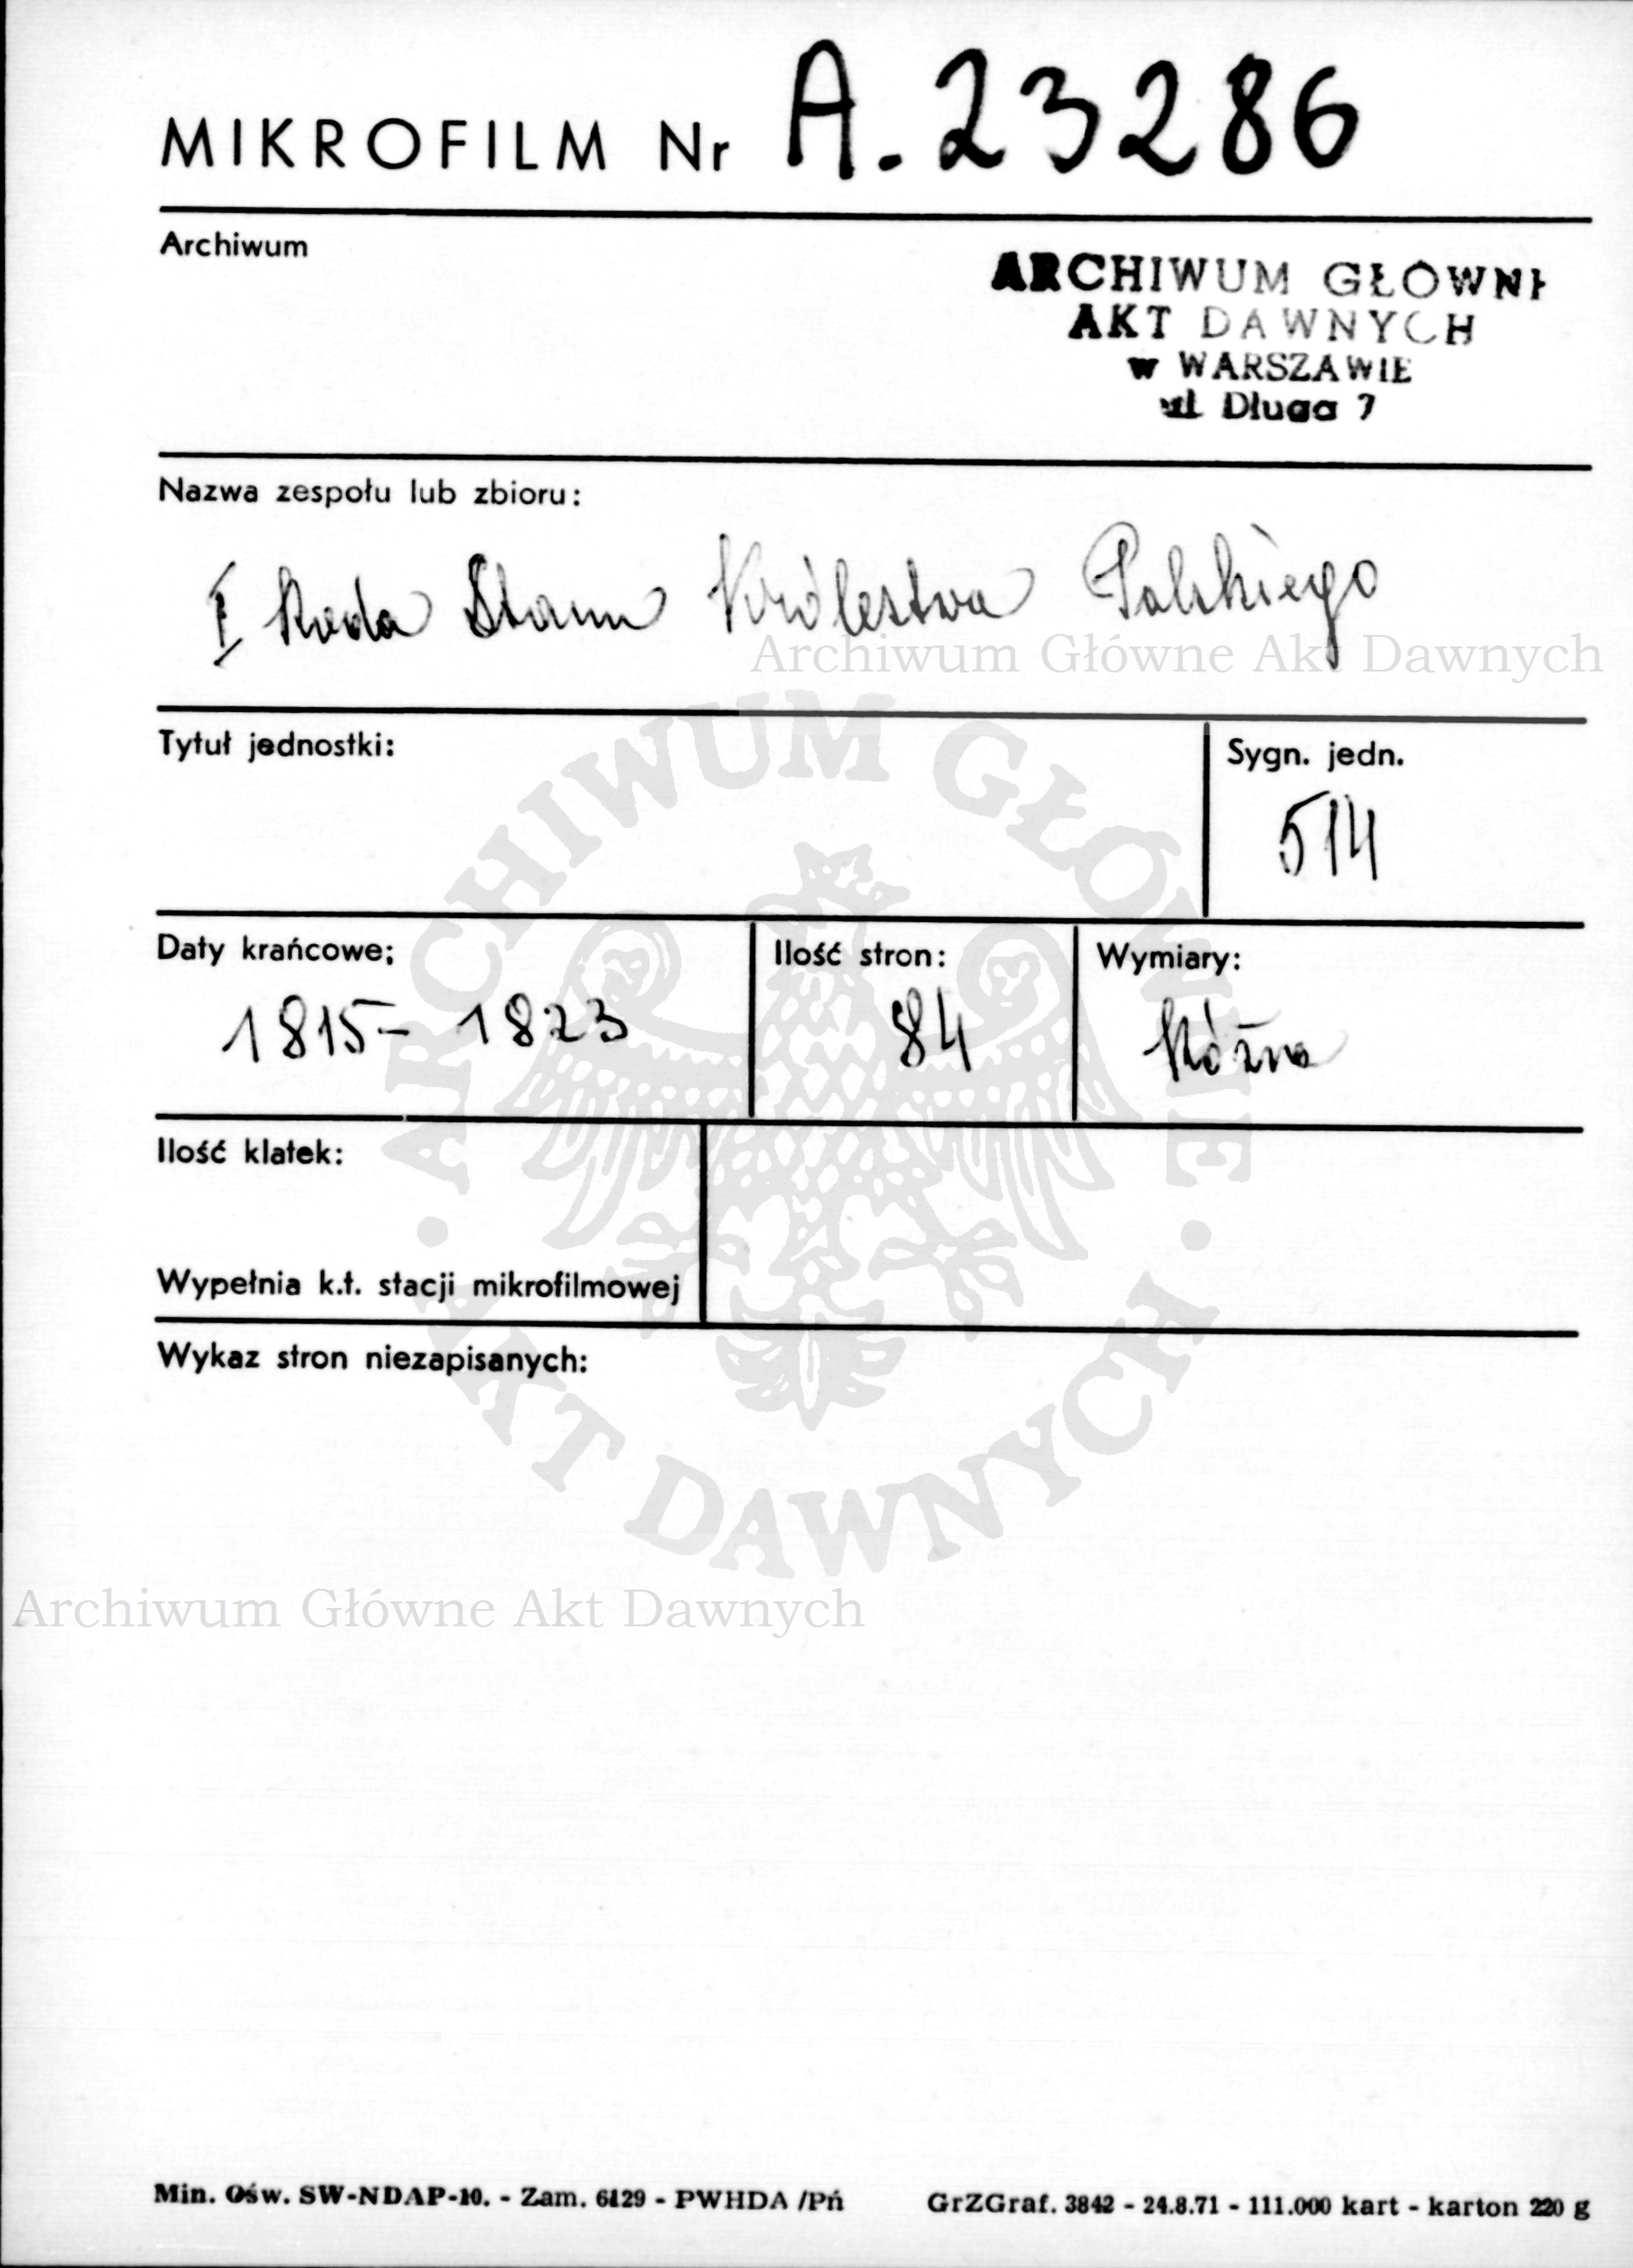 MIKROFILM Nr A. 23286
Archiwum
ARCHIWUM GŁÓWNE
AKT DAWNYCH
w WARSZAWIE
ul Długa 7
Nazwa zespołu lub zbioru:
I Rada Stanu Królestwa Polskiego
Archiwum Główne Akt Dawnych
Tytuł jednostki:
Sygn. jedn.
514
ARCHIWUM GŁÓWNE
Daty krańcowe:
Ilość stron:
Wymiary:
1815 - 1823
84
Różne
Ilość klatek:
Wypełnia k.t. stacji mikrofilmowej
Wykaz stron niezapisanych:
AKT DAWNYCH
Archiwum Główne Akt Dawnych
Min. Ośw. SW-NDAP-10. - Zam. 6129 - PWHDA /Pń
GrZGraf. 3842 - 24.8.71 - 111.000 kart - karton 220 g